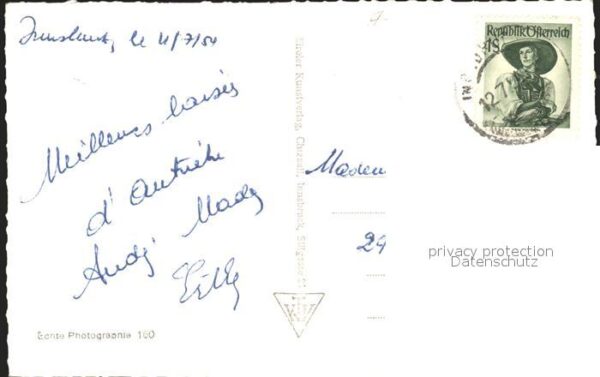 Innsbruck, le 11/7/50
Meilleurs baisers
d'Autriche
Andy Mady
Lilly
Echte Photographie 160
Tiroler Kunstverlag, Chizzali, Innsbruck, Sillgasse
Republik Österreich
1S
12.7
Madem
29
privacy protection
Datenschutz